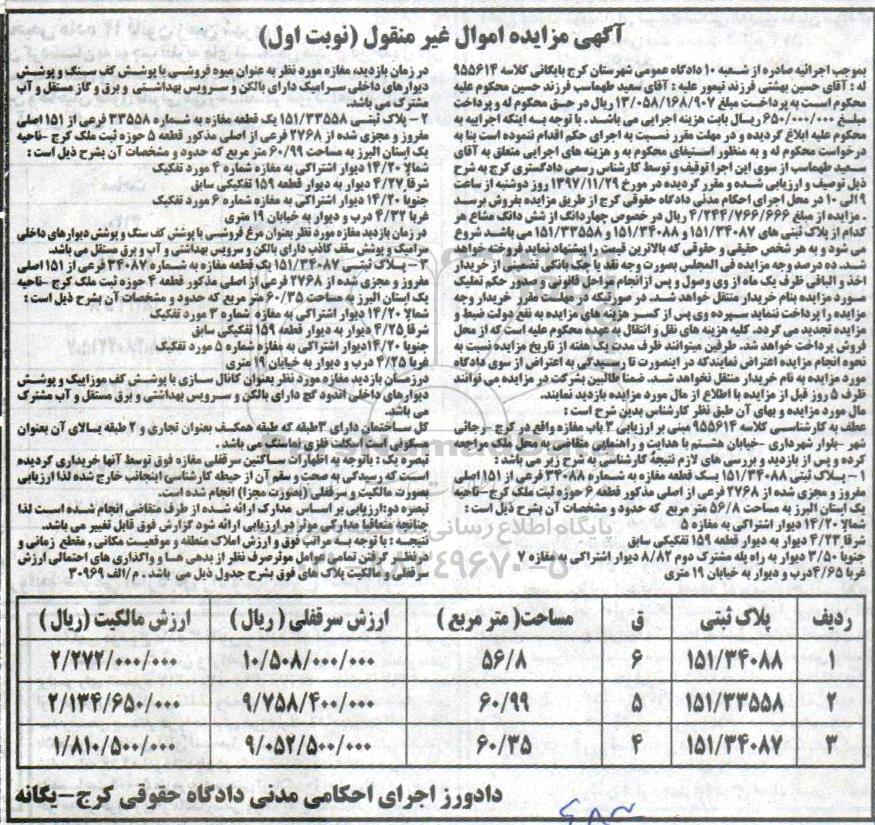 آگهی مزایده اموال غیر منقول (نوبت اول)
بموجب اجرائیه صادره از شعبه ۱۰ دادگاه عمومی شهرستان کرج بایگانی کلاسه ۹۵۵۶۱۴
له : آقای حسین بهشتی فرزند تیمور علیه : آقای سعید طهماسب فرزند حسین محکوم علیه
محکوم است به پرداخت مبلغ ۱۳/۰۵۸/۱۶۸/۹۰۷ ریال در حق محکوم له و پرداخت
مبلغ ۶۵۰/۰۰۰/۰۰۰ ریال بابت هزینه اجرایی می باشد . با توجه به اینکه اجراییه به
محکوم علیه ابلاغ گردیده و در مهلت مقرر نسبت به اجرای حکم اقدام ننموده است بنا به
درخواست محکوم له و به منظور استیفای محکوم به و هزینه های اجرایی متعلق به آقای
سعید طهماسب از سوی این اجرا توقیف و توسط کارشناس رسمی دادگستری کرج به شرح
ذیل توصیف و ارزیابی شده و مقرر گردیده در مورخ ۱۳۹۷/۱۱/۲۹ روز دوشنبه از ساعت
۹ الی ۱۰ در محل اجرای احکام مدنی دادگاه حقوقی کرج از طریق مزایده بفروش برسد
. مزایده از مبلغ ۴/۲۴۴/۷۶۶/۶۶۶ ریال در خصوص چهاردانگ از شش دانگ مشاع هر
کدام از پلاک ثبتی های ۱۵۱/۳۴۰۸۷ و ۱۵۱/۳۴۰۸۸ و ۱۵۱/۳۳۵۵۸ می باشد شروع
می شود و به هر شخص حقیقی و حقوقی که بالاترین قیمت را پیشنهاد نماید فروخته خواهد
شد. ده درصد وجه مزایده فی المجلس بصورت وجه نقد یا چک بانکی تضمینی از خریدار
اخذ و الباقی ظرف یک ماه از وی وصول و پس از انجام مراحل قانونی و صدور حکم تملیک
مورد مزایده بنام خریدار منتقل خواهد شد. در صورتیکه در مهلت مقرر خریدار وجه
مزایده را پرداخت ننماید سپرده وی پس از کسر هزینه های مزایده به نفع دولت ضبط و
مزایده تجدید می گردد. کلیه هزینه های نقل و انتقال به عهده محکوم علیه است که از محل
فروش پرداخت خواهد شد. طرفین میتوانند ظرف مدت یک هفته از تاریخ مزایده نسبت به
نحوه انجام مزایده اعتراض نمایندکه در اینصورت تا رسیدگی به اعتراض از سوی دادگاه
مورد مزایده به نام خریدار منتقل نخواهد شد. ضمنا طالبین بشرکت در مزایده می توانند
ظرف ۵ روز قبل از مزایده با اطلاع از مال مورد مزایده بازدید نمایند.
مال مورد مزایده و بهای آن طبق نظر کارشناس بدین شرح است :
عطف به کارشناسی کلاسه ۹۵۵۶۱۴ مبنی بر ارزیابی ۳ باب مغازه واقع در کرج -رجائی
شهر -بلوار شهرداری -خیابان هشتم با هدایت و راهنمایی متقاضی به محل ملک مراجعه
کرده و پس از بازدید و بررسی های لازم نتیجه کارشناسی به شرح زیر می باشد :
۱- پلاک ثبتی ۱۵۱/۳۴۰۸۸ یک قطعه مغازه به شماره ۳۴۰۸۸ فرعی از ۱۵۱ اصلی
مفروز و مجزی شده از ۲۷۶۸ فرعی از اصلی مذکور قطعه ۶ حوزه ثبت ملک کرج -ناحیه
یک استان البرز به مساحت ۵۶/۸ متر مربع که حدود و مشخصات آن بشرح ذیل است :
شمالا ۱۴/۲۰ دیوار اشتراکی به مغازه ۵
شرقا ۴/۲۳ دیوار به دیوار قطعه ۱۵۹ تفکیکی سابق
جنوبا ۳/۵۰ دیوار به راه پله مشترک دوم ۸/۸۲ دیوار اشتراکی به مغازه ۷
غربا ۴/۶۵درب و دیوار به خیابان ۱۹ متری
در زمان بازدید، مغازه مورد نظر به عنوان میوه فروشی با پوشش کف سنگ و پوشش
دیوارهای داخلی سرامیک دارای بالکن و سرویس بهداشتی و برق و گاز مستقل و آب
مشترک می باشد.
۲- پلاک ثبتی ۱۵۱/۳۳۵۵۸ یک قطعه مغازه به شماره ۳۳۵۵۸ فرعی از ۱۵۱ اصلی
مفروز و مجزی شده از ۲۷۶۸ فرعی از اصلی مذکور قطعه ۵ حوزه ثبت ملک کرج -ناحیه
یک استان البرز به مساحت ۶۰/۹۹ متر مربع که حدود و مشخصات آن بشرح ذیل است :
شمالا ۱۴/۲۰ دیوار اشتراکی به مغازه شماره ۴ مورد تفکیک
شرقا ۴/۲۷ دیوار به دیوار قطعه ۱۵۹ تفکیکی سابق
جنوبا ۱۴/۲۰ دیوار اشتراکی به مغازه شماره ۶ مورد تفکیک
غربا ۴/۳۲ درب و دیوار به خیابان ۱۹ متری
در زمان بازدید مغازه مورد نظر بعنوان مرغ فروشی با پوشش کف سنگ و پوشش دیوارهای داخلی
سرامیک و پوشش سقف کاذب دارای بالکن و سرویس بهداشتی و آب و برق مستقل می باشد.
۳- پلاک ثبتی ۱۵۱/۳۴۰۸۷ یک قطعه مغازه به شماره ۳۴۰۸۷ فرعی از ۱۵۱ اصلی
مفروز و مجزی شده از ۲۷۶۸ فرعی از اصلی مذکور قطعه ۴ حوزه ثبت ملک کرج -ناحیه
یک استان البرز به مساحت ۶۰/۳۵ متر مربع که حدود و مشخصات آن بشرح ذیل است :
شمالا ۱۴/۲۰ دیوار اشتراکی به مغازه شماره ۳ مورد تفکیک
شرقا ۴/۲۵ دیوار به دیوار قطعه ۱۵۹ تفکیکی سابق
جنوبا ۱۴/۲۰دیوار اشتراکی به مغازه شماره ۵ مورد تفکیک
غربا ۴/۲۵ درب و دیوار به خیابان ۱۹ متری
درزمان بازدید مغازه مورد نظر بعنوان کانال سازی با پوشش کف موزاییک و پوشش
دیوارهای داخلی اندود گچ دارای بالکن و سرویس بهداشتی و برق مستقل و آب مشترک
می باشد.
کل ساختمان دارای ۳طبقه که طبقه همکف بعنوان تجاری و ۲ طبقه بالای آن بعنوان
مسکونی با اسکلت فلزی نماسنگ می باشد.
تبصره یک : باتوجه به اظهارات ساکنین سرقفلی مغازه فوق توسط آنها خریداری گردیده
است که رسیدگی به صحت و سقم آن از حیطه کارشناسی اینجانب خارج شده لذا ارزیابی
بصورت مالکیت و سرقفلی (بصورت مجزا) انجام شده است.
تبصره دو: ارزیابی بر اساس مدارک ارائه شده از طرف متقاضی انجام شده است لذا
چنانچه متعاقبا مدارکی موثر بر ارزیابی ارائه شود گزارش فوق قابل تغییر می باشد.
نتیجه : با توجه به مراتب فوق و ارزش املاک منطقه و موقعیت مکانی , مقطع زمانی و
درنظر گرفتن تمامی عوامل موثرصرف نظر از بدهی ها و واگذاری های احتمالی ارزش
سرقفلی و مالکیت پلاک های فوق بشرح جدول ذیل می باشد. م/الف ۳۰۹۶۹
ردیف پلاک ثبتی ق مساحت( متر مربع ) ارزش سرقفلی ( ریال ) ارزش مالکیت (ریال )
۱ ۱۵۱/۳۴۰۸۸ ۶ ۵۶/۸ ۱۰/۵۰۸/۰۰۰/۰۰۰ ۲/۲۷۲/۰۰۰/۰۰۰
۲ ۱۵۱/۳۳۵۵۸ ۵ ۶۰/۹۹ ۹/۷۵۸/۴۰۰/۰۰۰ ۲/۱۳۴/۶۵۰/۰۰۰
۳ ۱۵۱/۳۴۰۸۷ ۴ ۶۰/۳۵ ۹/۰۵۲/۵۰۰/۰۰۰ ۱/۸۱۰/۵۰۰/۰۰۰
دادورز اجرای احکامی مدنی دادگاه حقوقی کرج -یگانه